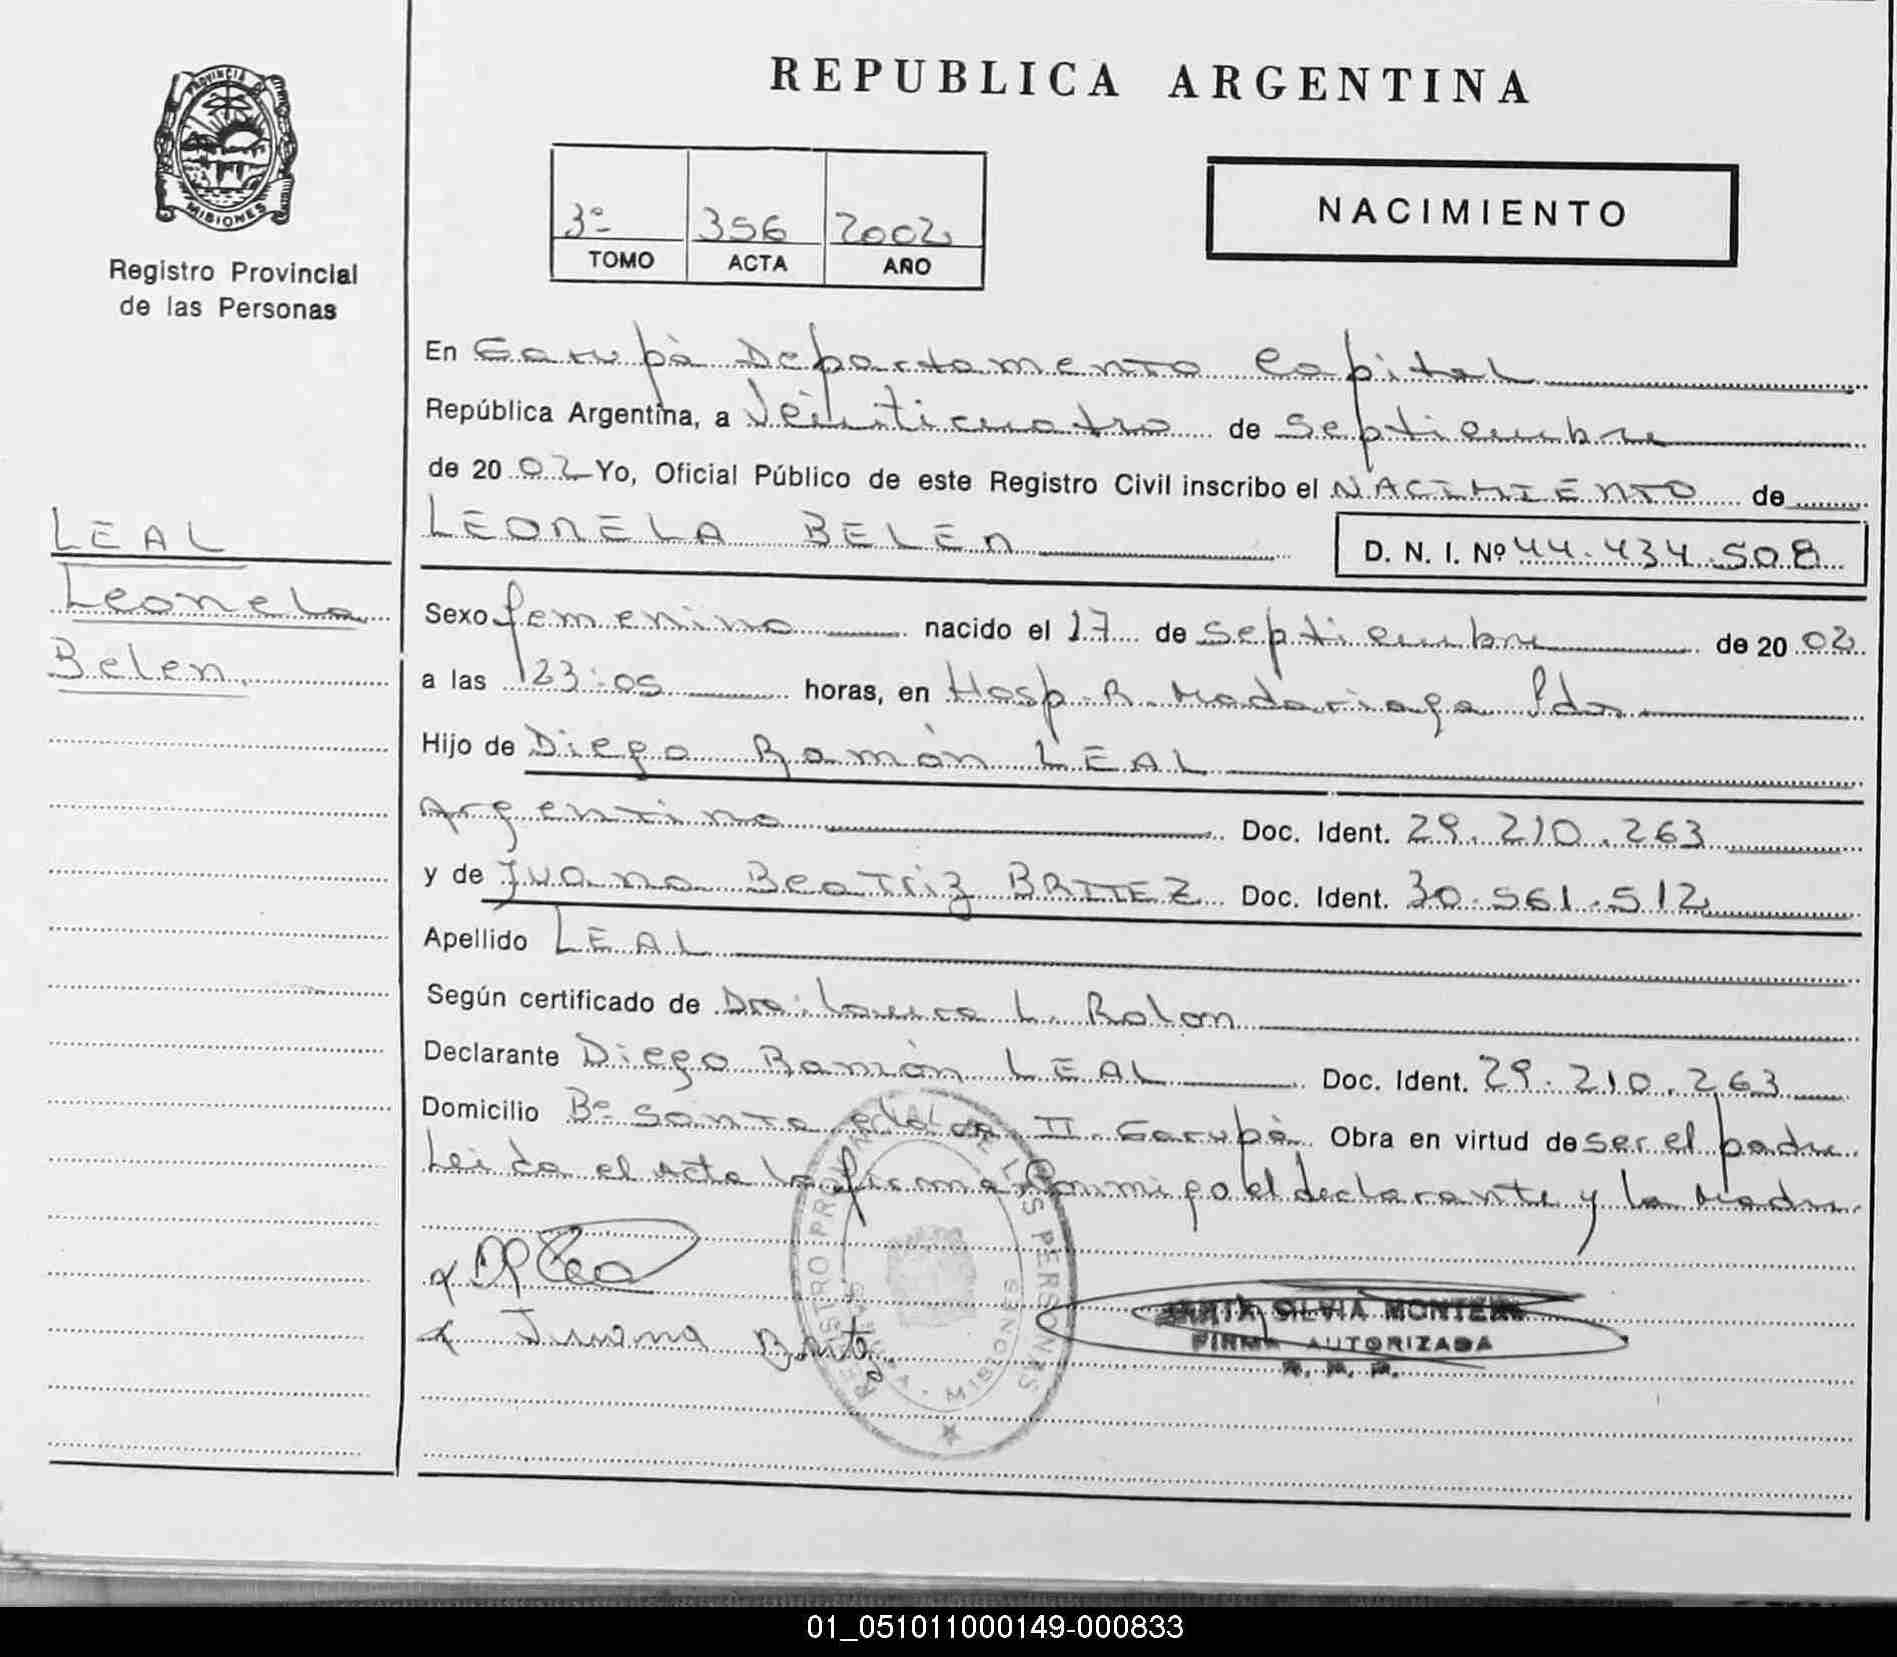 REPUBLICA ARGENTINA
PROVINCIA
MISIONES
Registro Provincial
de las Personas
3º 356 2002
TOMO ACTA AÑO
NACIMIENTO
En Garupà Departamento Capital
República Argentina, a Veinticuatro de Septiembre
de 20 02 Yo, Oficial Público de este Registro Civil inscribo el NACIMIENTO de
LEONELA BELEN D. N. I. Nº 44.434.508
LEAL
Leonela
Belen
Sexo femenino nacido el 17 de Septiembre de 20 02
a las 23:05 horas, en Hosp. R. Madariaga Pdas
Hijo de Diego Ramón LEAL
Argentino Doc. Ident. 29.210.263
y de Juana Beatriz BRITEZ Doc. Ident. 30.561.512
Apellido LEAL
Según certificado de Dra: Laura L. Rolon
Declarante Diego Ramón LEAL Doc. Ident. 29.210.263
Domicilio Bº Santa II Garupà Obra en virtud de ser el padre
Leida el Acta la firman Conmigo el declarante y la Madre
REGISTRO PROVINCIAL DE LAS PERSONAS
MISIONES
Juana
SILVIA MONTERO
FIRMA AUTORIZADA
01_051011000149-000833